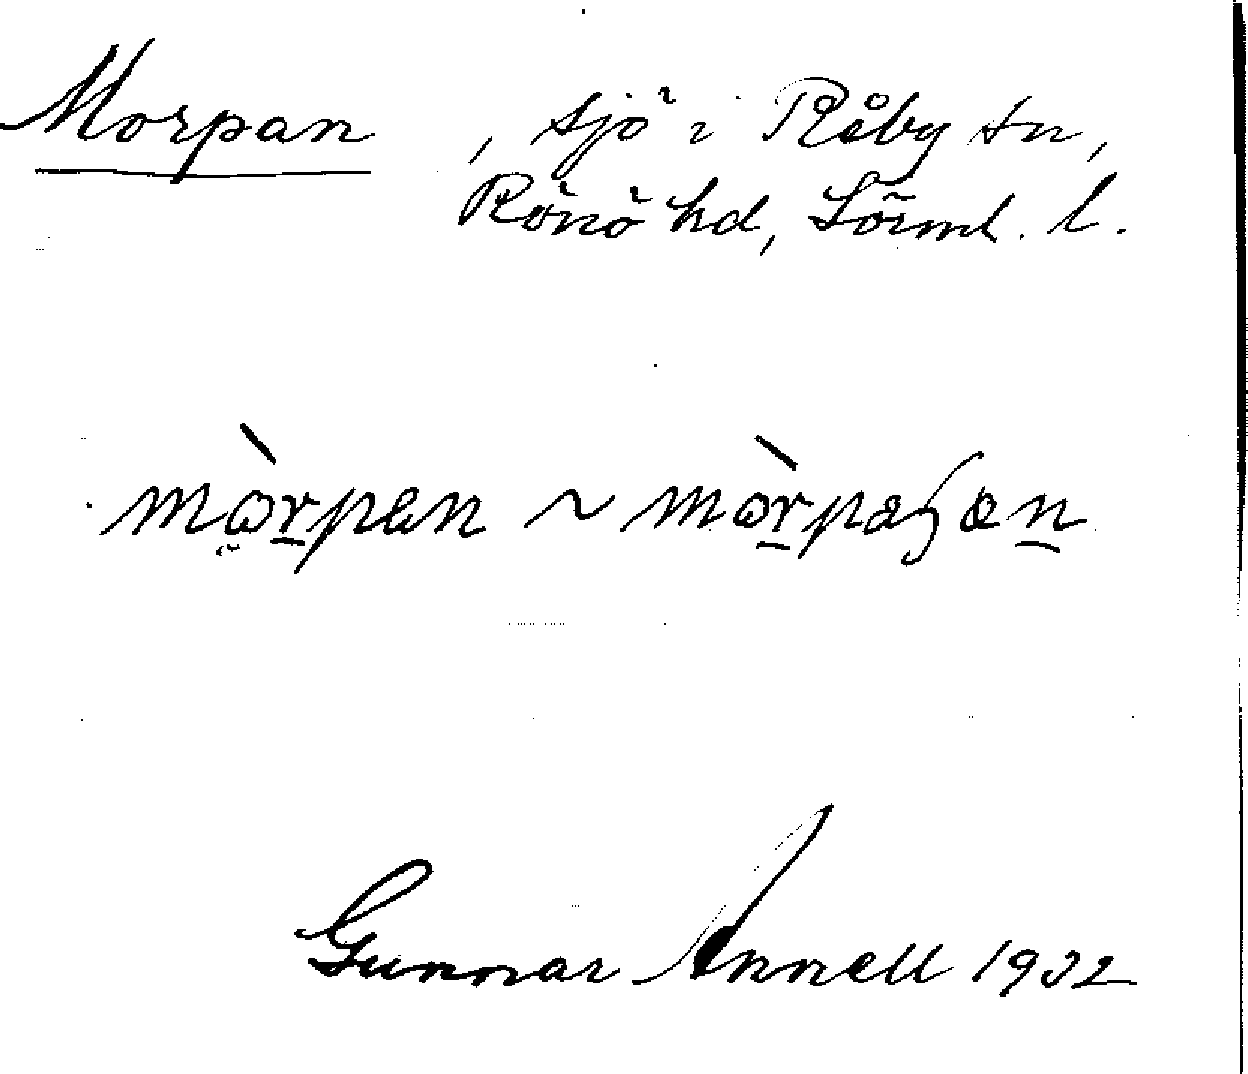 Morpan, sjö i Råby sn,
Rönö hd, Sörml. l.
mòrpan ~ mòrpaʃən
Gunnar Annell 1932